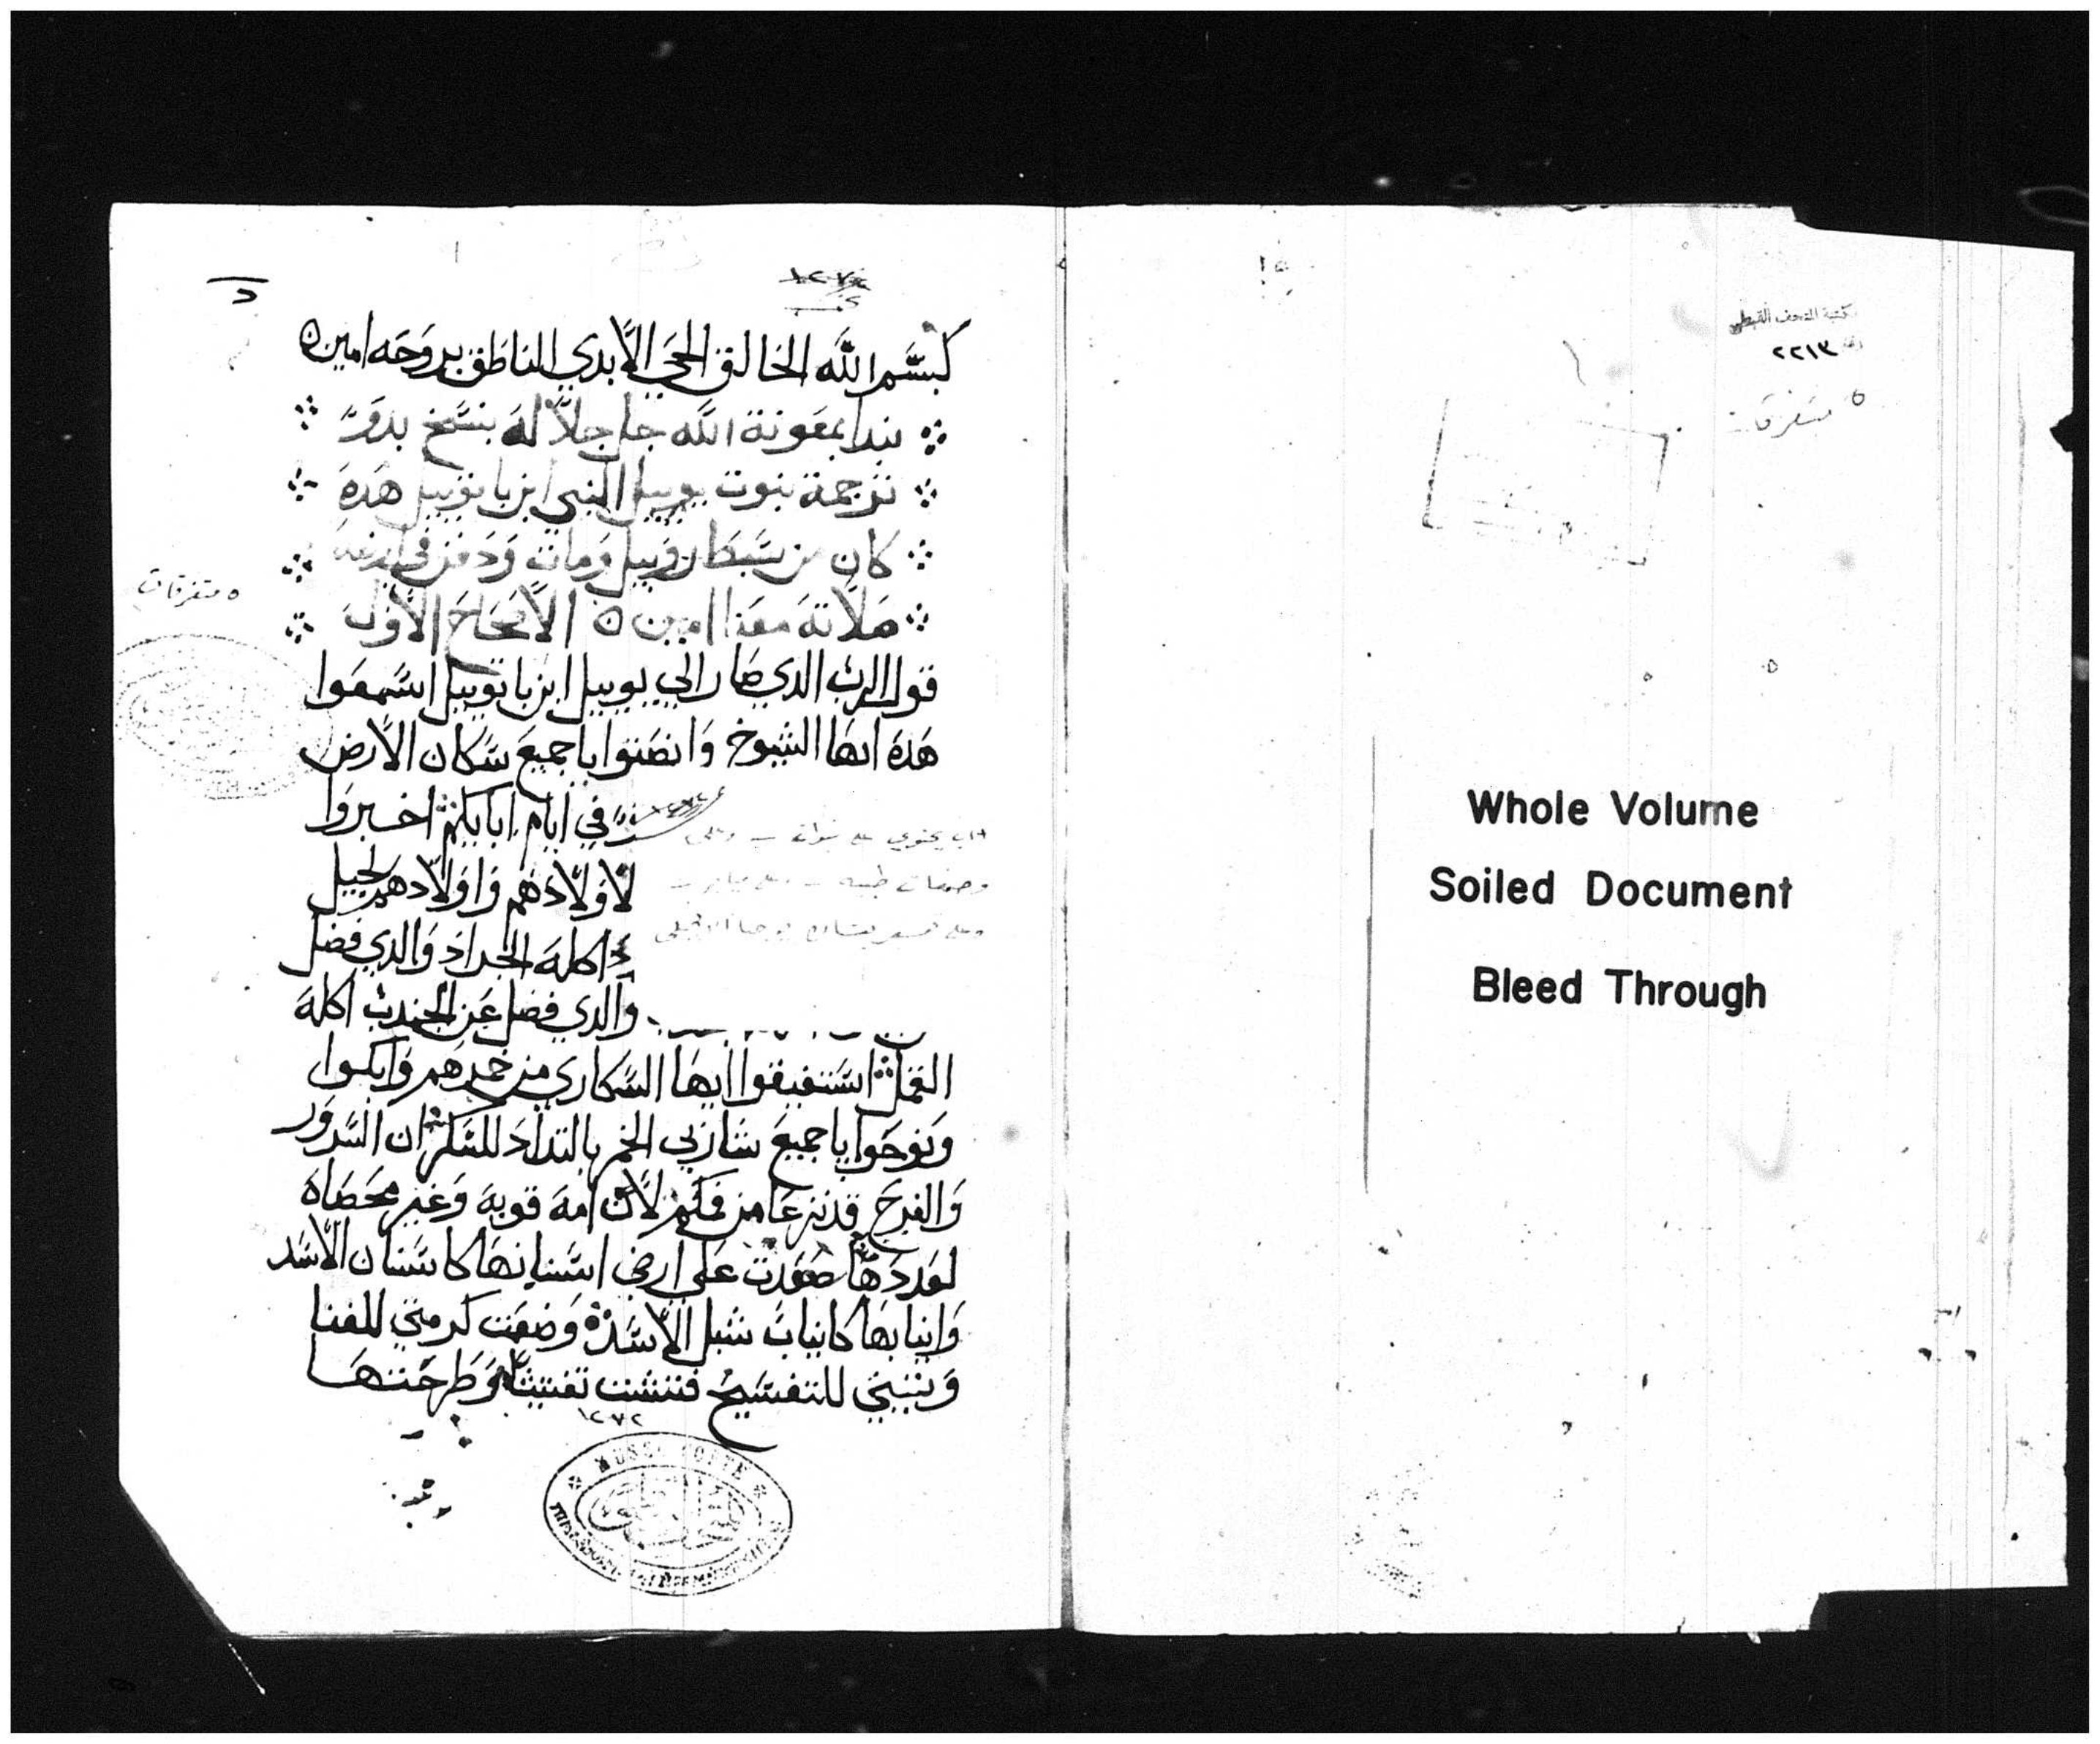 بسم الله الخالق الحي الابدي الناطق بروحه امين
نبدا بمعونة الله جل جلاله بنسخ بدو
ترجمة بنوت يوييل النبي ابن باتوييل هده
كان من سبط روبيل ومات ودفن في ارضه
صلاته معنا امين الاصحاح الاول
قول الرب الدي صار الي يوييل ابن باتوييل اسمعوا
هده ايها الشيوخ وانصتوا يا جميع سكان الارض
في ايام ابايكم اخبروا
لاولادهم واولادهم لجيل
اكله الجراد والدي فضل
والدي فضل عن الجندب اكله
القمل استفيقوا ايها السكاري من خمرهم وابكوا
ونوحوا يا جميع شاربي الخمر بالتداد للسكر ان السرور
والفرح قد نزعا من فمكم لان امه قويه وغير محصاه
لعددها صعدت علي ارضي اسنانها كاسنان الاسد
وانيابها كانياب شبل الاسد وضعت كرمتي للفنا
وتينتي للتفسيخ فتشت تفتيشا وطرحتها
١٢٧٢
٥ متفرقات
كتاب يحتوي على نبوات – وعلى
وصفات طبيه –
MUSEE COPTE
مكتبة المتحف القبطي
٢٢١٣
٥ متفرقات
Whole Volume
Soiled Document
Bleed Through